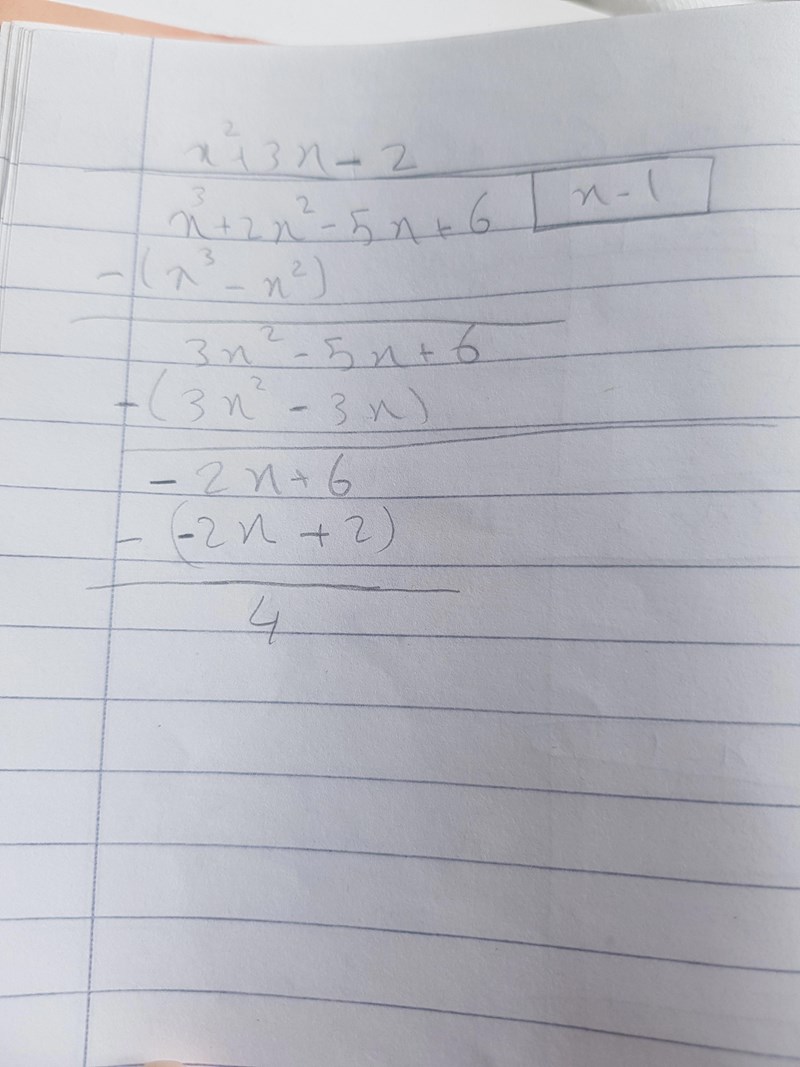 x²+3x-2
x³+2x²-5x+6 x-1
-(x³-x²)
3x²-5x+6
-(3x²-3x)
-2x+6
-(-2x+2)
4